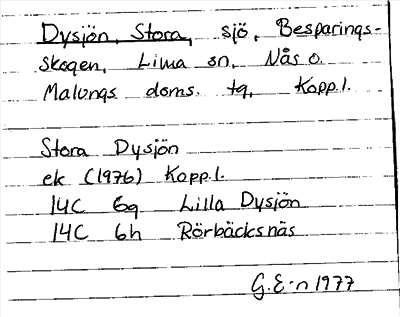 Dysjön, Stora, sjö, Besparings-
skogen, Lima sn, Nås o.
Malungs doms. tg, Kopp.l.
Stora Dysjön
ek (1976) Kopp.l.
14C 6g Lilla Dysjön
14C 6h Rörbäcksnäs
G.E-n 1977